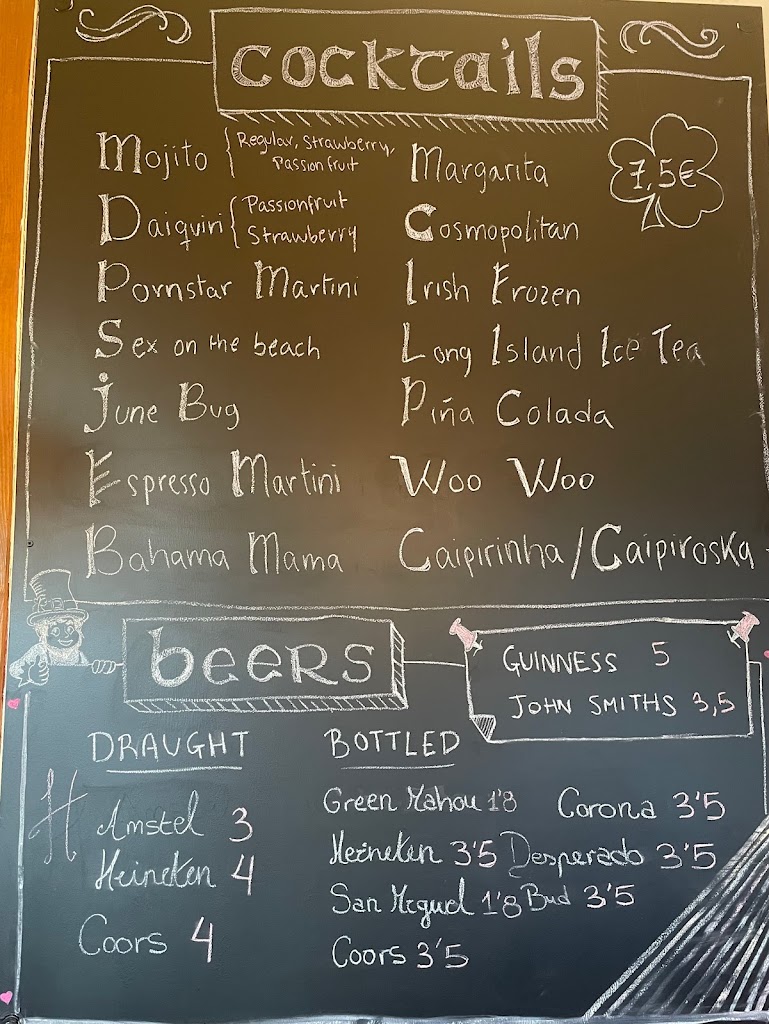 cocktails
Mojito { Regular, Strawberry,
Passion fruit
Daiquiri { Passionfruit
Strawberry
Pornstar Martini
Sex on the beach
June Bug
Espresso Martini
Bahama Mama
Margarita
Cosmopolitan
Irish Frozen
Long Island Ice Tea
Piña Colada
Woo Woo
Caipirinha/Caipiroska
7,5€
beers
GUINNESS 5
JOHN SMITHS 3,5
DRAUGHT
H
Amstel 3
Heineken 4
Coors 4
BOTTLED
Green Mahou 1'8
Heineken 3'5
San Meguel 1'8
Coors 3'5
Corona 3'5
Desperado 3'5
Bud 3'5